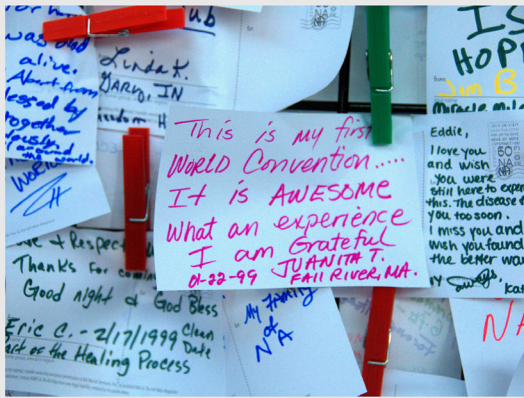 was and
alive.
About from
blessed by
together
around
the world.
Linda K.
GARY, IN
This is my first
WORLD Convention.....
It is AWESOME
What an experience
I am Grateful
01-22-99 JUANITA T.
FAll RIVER, MA.
IS
HOP
Jim B
Miracle mile
Eddie,
I love you
and wish
you were
still here to exper
this. The disease t
you too soon.
I miss you and
wish you found
the better wa
always,
NA
60
NA
& Respect
Thanks for comin
Good night & God Bless
Eric C. - 2/17/1999 Clean
Date
of the Healing Process
My Family
of
NA
N